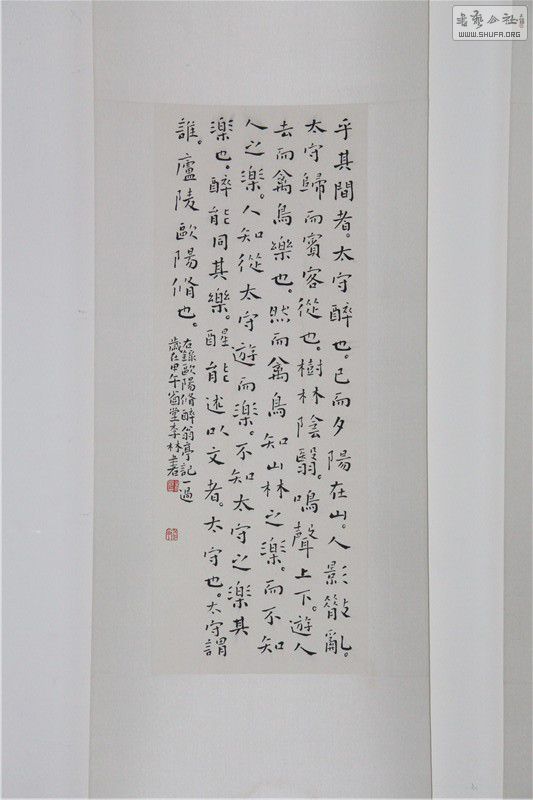 乎其間者。太守醉也。已而夕陽在山。人影散亂。
太守歸而賓客從也。樹林陰翳。鳴聲上下。遊人
去而禽鳥樂也。然而禽鳥知山林之樂。而不知
人之樂。人知從太守遊而樂。不知太守之樂其
樂也。醉能同其樂。醒能述以文者。太守也。太守謂
誰。廬陵歐陽脩也。
右錄歐陽脩醉翁亭記一過
歲在甲午堂李林書
書藝公社
WWW.SHUFA.ORG